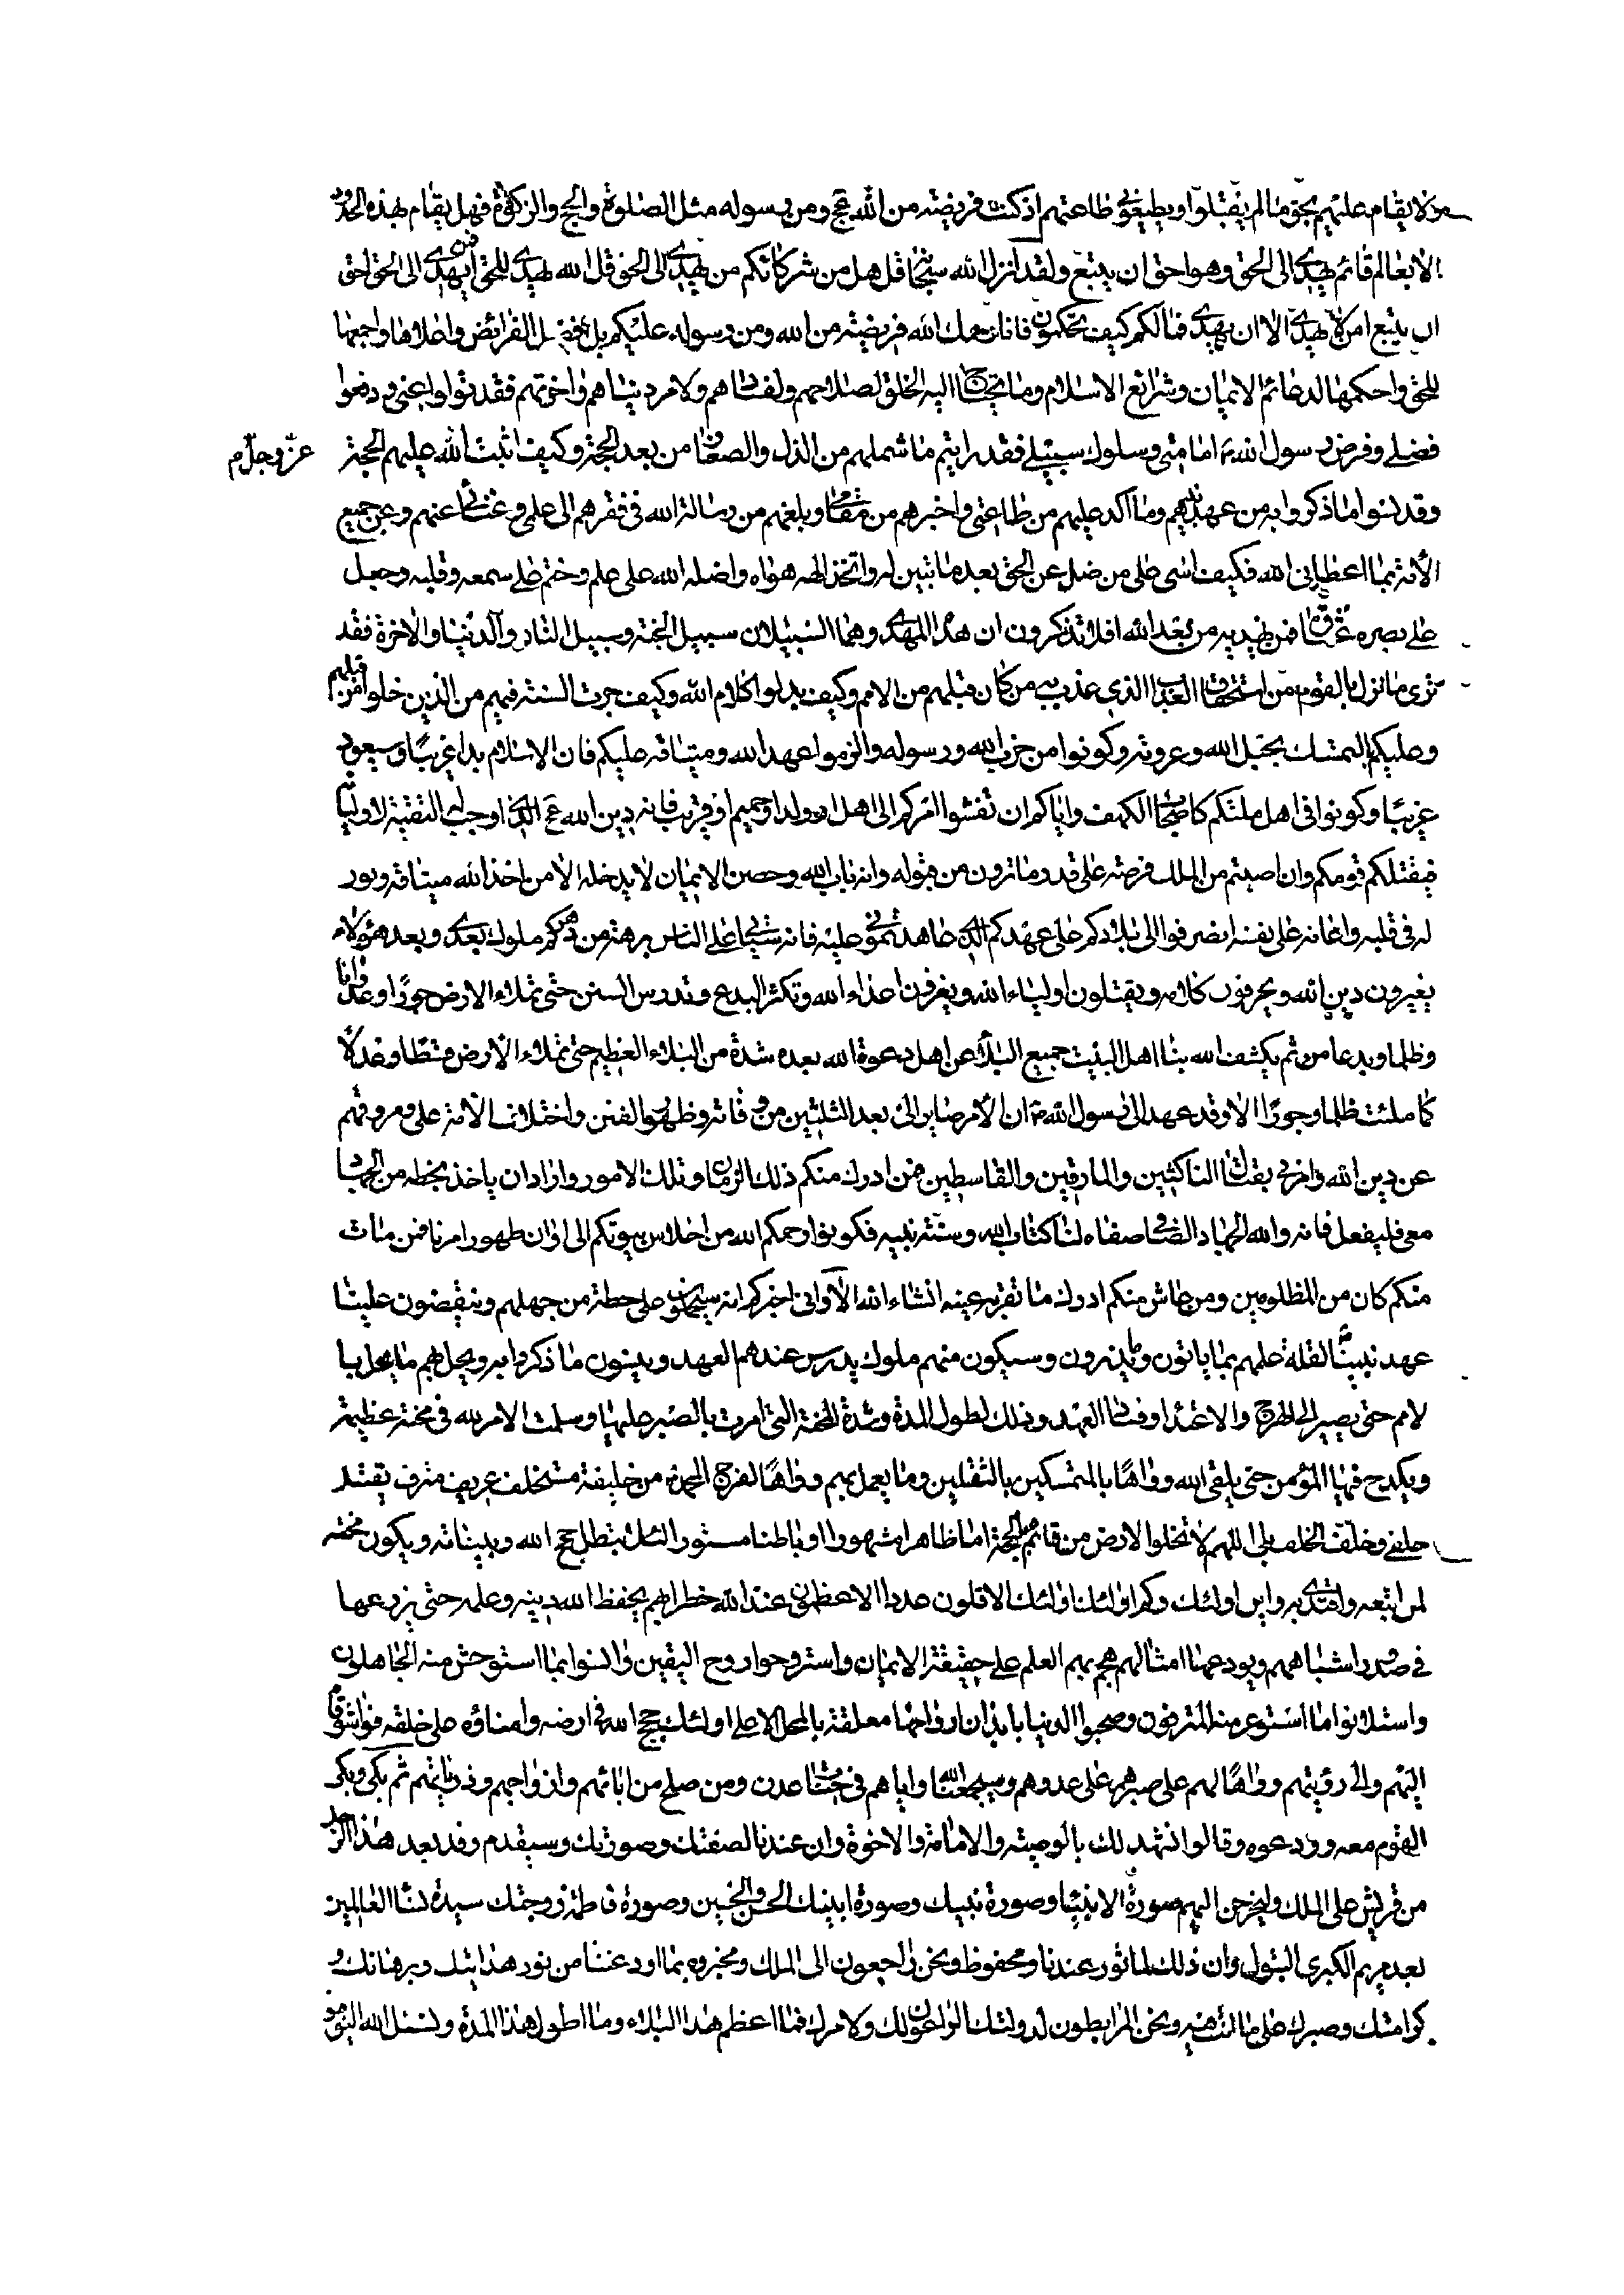 ولا يقام عليهم بحق ما لم يقبلوا ويطيعوني طاعتهم اذ كنت فريضة من الله عج ومن رسوله مثل الصلوة والحج والزكوة فهل يقام بهذه الحدود
الا بعالم قائم يهدى الى الحق وهو احق ان يتبع ولقد انزل الله سبحانه قل هل من شركائكم من يهدى الى الحق قل الله يهدى للحق افمن يهدى الى الحق احق
ان يتبع امن لا يهدى الا ان يهدى فما لكم كيف تحكمون فانا رحمك الله فريضة من الله ومن رسوله عليكم بل افضل الفرائض واعلاها واجمعها
للحق واحكمها لدعائم الايمان وشرائع الاسلام وما يحتاج اليه الخلق لصلاحهم ولفسادهم ولامر دنياهم واخرتهم فقد تولوا عنى ودفعوا
فضلى وفرض رسول الله امامتى وسلوك سبيلى فقد رايتم ما شملهم من الذل والصغار من بعد الحجة وكيف اثبت الله عليهم الحجة
عز وجل م
وقد نسوا ما ذكروا به من عهد نبيهم وما اكد عليهم من طاعتى واخبرهم من مقامى وبلغهم من رسالة الله فى فقرهم الى علمى وغنائى عنهم وعن جميع
الأمة بما اعطانى الله فكيف اسى على من ضل عن الحق بعد ما تبين له واتخذ الهه هواه واضله الله على علم وختم على سمعه وقلبه وجعل
على بصره غشاوة فمن يهديه من بعد الله افلا تذكرون ان هذا المهدى وهما السبيلان سبيل الجنة وسبيل النار والدنيا والاخرة فقد
ترى ما نزل بالقوم من استحقاق العذاب الذى عذب به من كان قبلهم من الامم وكيف بدلوا كلام الله وكيف جرت السنة فيهم من الذين خلوا من قبلهم
وعليكم بالتمسك بحبل الله وعروته وكونوا من حزب الله ورسوله والزموا عهد الله وميثاقه عليكم فان الاسلام بدا غريبا وسيعود
غريبا وكونوا فى اهل ملتكم كاصحاب الكهف واياكم ان تفشوا امركم الى اهل او ولد او حميم او قريب فانه دين الله عج الذى اوجب له التقية لاوليائه
فيقتلكم قومكم وان اصبتم من الملك فرصة على قدر ما ترون من قبوله وانه باب الله وحصن الايمان لا يدخله الا من اخذ الله ميثاقه ونور
له فى قلبه واعانه على نفسه انصرفوا الى بلادكم على عهدكم الذى عاهدتمونى عليه فانه سياتى على الناس برهة من دهركم ملوك بعدى وبعد هؤلاء
يغيرون دين الله ويحرفون كلامه ويقتلون اولياء الله ويعزون اعداء الله وتكثر البدع وتدرس السنن حتى تملاء الارض جورا وعدوانا
وظلما وبدعا من ثم يكشف الله بنا اهل البيت جميع البلاء عن اهل دعوة الله بعد شدة من البلاء العظيم حتى تملاء الارض قسطا وعدلا
كما ملئت ظلما وجورا الا وقد عهد الى رسول الله ان الامر صاير الى بعد الثلثين من وفاته وظهور الفتن واختلاف الامة على ومروقهم
عن دين الله وامرنى بقتال الناكثين والمارقين والقاسطين فمن ادرك منكم ذلك الزمان وتلك الامور واراد ان ياخذ بحظه من الجهاد
معى فليفعل فانه والله الجهاد الصافى صفاه لنا كتاب الله وسنة نبيه فكونوا رحمكم الله من احلاس بيوتكم الى اوان ظهور امرنا فمن مات
منكم كان من المظلومين ومن عاش منكم ادرك ما تقر به عينه انشاء الله الا وانى اخبركم انه سيحملون على خطة من جهلهم وينقضون علينا
عهد نبينا لقلة علمهم بما ياتون وما يذرون وسيكون منهم ملوك يدرس عندهم العهد وينسون ما ذكروا به ويحل بهم ما يحل با
لامم حتى يصير الى الهرج والاعتداء وفساد العهد وذلك لطول المدة وشدة المحنة التى امرت بالصبر عليها وسلمت الامر لله فى محنة عظيمة
ويكدح فيها المؤمن حتى يلقى الله وواها بالمتمسكين بالثقلين وما يعمل بهم وواها لفرج ال محمد من خليفة مستخلف عريف مترف يقتل
خلفى وخلف الخلف بلى اللهم لا تخلوا الارض من قائم بحجة اما ظاهرا مشهورا او باطنا مستورا لئلا يبطل حجج الله وبيناته ويكون محنة
لمن اتبعه واقتدى به واين اولئك وكم اولئك اولئك الاقلون عددا الاعظمون عند الله خطرا بهم يحفظ الله دينه وعلمه حتى يزرعها
فى صدور اشباههم ويودعها امثالهم هجم بهم العلم على حقيقة الايمان واستروحوا روح اليقين وانسوا بما استوحش منه الجاهلون
واستلانوا ما استوعر منه المترفون وصحبوا الدنيا بابدان ارواحها معلقة بالمحل الاعلى اولئك حجج الله فى ارضه وامناؤه على خلقه فواشوقاه
اليهم والى رؤيتهم وواها لهم على صبرهم على عدوهم وسيجمعنا الله واياهم فى جنات عدن ومن صلح من ابائهم وازواجهم وذرياتهم ثم بكى وبكى
القوم معه وودعوه وقالوا نشهد لك بالوصية والامامة والاخوة وان عندنا لصفتك وصورتك وسيقدم وفد بعد هذا الرجل
من قريش على الملك وليخرجن اليهم صورة الانبياء وصورة نبيك وصورة ابنيك الحسن والحسين وصورة فاطمة زوجتك سيدة نساء العالمين
بعد مريم الكبرى البتول وان ذلك لماثور عندنا ومحفوظ ونحن راجعون الى الملك ومخبروه بما اودعتنا من نور هدايتك وبرهانك و
كرامتك وصبرك على ما انت فيه ونحن المرابطون لدولتك الداعون لك ولامرك فما اعظم هذا البلاء وما اطول هذا المدة ونسئل الله التوفيق